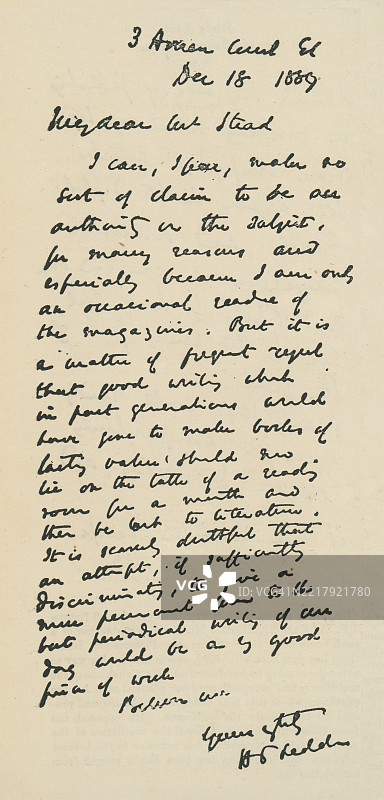 3 Amen Court EC
Dec 18 1889
My dear Mr Stead
I can, I fear, make no
sort of claim to be an
authority on the subject,
for many reasons and
especially because I am only
an occasional reader of
the magazines. But it is
a matter of frequent regret
that good writing which
in past generations would
have gone to make books of
lasting value should now
lie on the table of a reading
room for a month and
then be lost to literature.
It is scarcely doubtful that
an attempt, if sufficiently
discriminating, to give a
more permanent form to the
best periodical writing of our
day would be a very good
piece of work
Believe me
Yours
VCG
ID: VCG41N2217921780